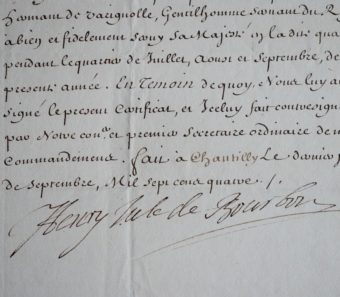 Hermant de Varignolle, Gentilhomme servant du R
a bien et fidelement servy sa Majesté en la dite qua
pendant le quartier de Juillet, Aoust et Septembre, de
presente année. En Temoin de quoy, Nous luy a
signé le present Certificat, et Iceluy fait contresign
par Notre con.er et premier Secretaire ordinaire de n
Commandemens. fait à Chantilly Le dernier J
de Septembre, Mil sept cens quatre /.
Henry Jule de Bourbon